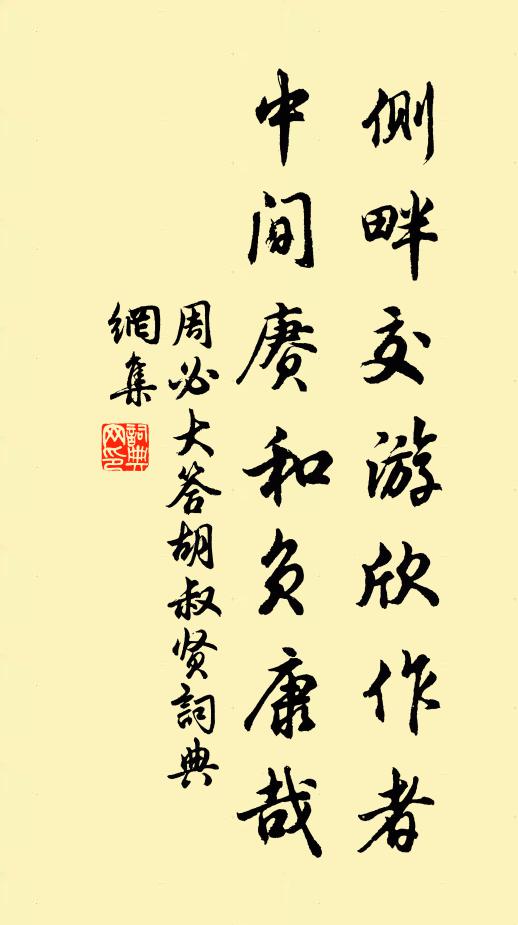 侧畔交游欣作者
中间赓和负康哉
周必大答胡叔贤詞典
網集
詞典网印